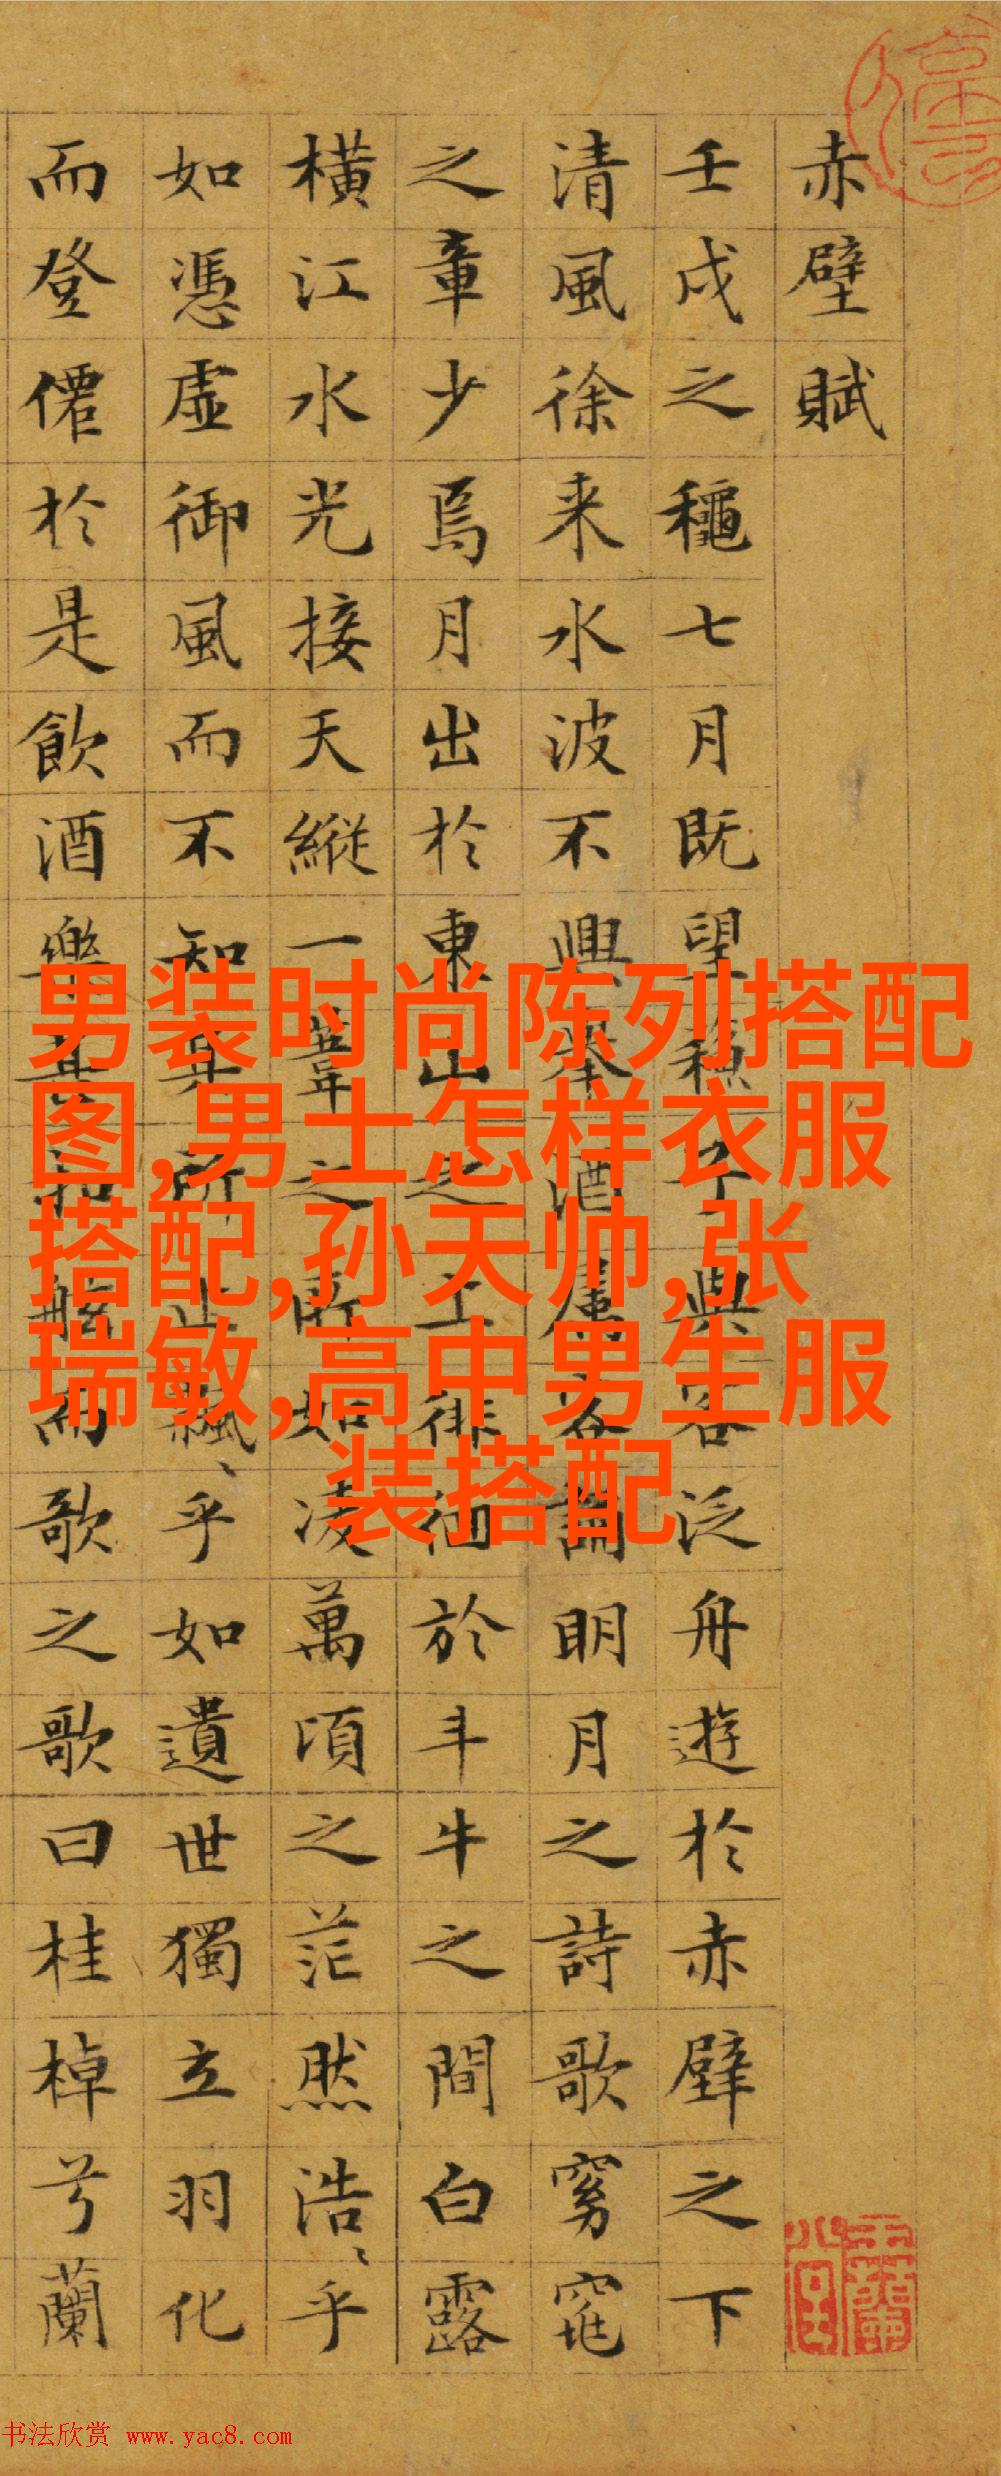 赤壁賦
壬戌之穐七月既望蘇子與客泛舟遊於赤壁之下
清風徐来水波不興舉酒屬客誦明月之詩歌窈窕
之章少焉月出於東山之上徘徊於斗牛之間白露
橫江水光接天縱一葦之所如凌萬頃之茫然浩〻乎
如憑虛御風而不知其所止飄〻乎如遺世獨立羽化
而登僊於是飲酒樂甚扣舷而歌之歌曰桂棹兮蘭
男装时尚陈列搭配
图,男士怎样衣服
搭配,孙天帅,张
瑞敏,高中男生服
装搭配
书法欣赏 www.yac8.com